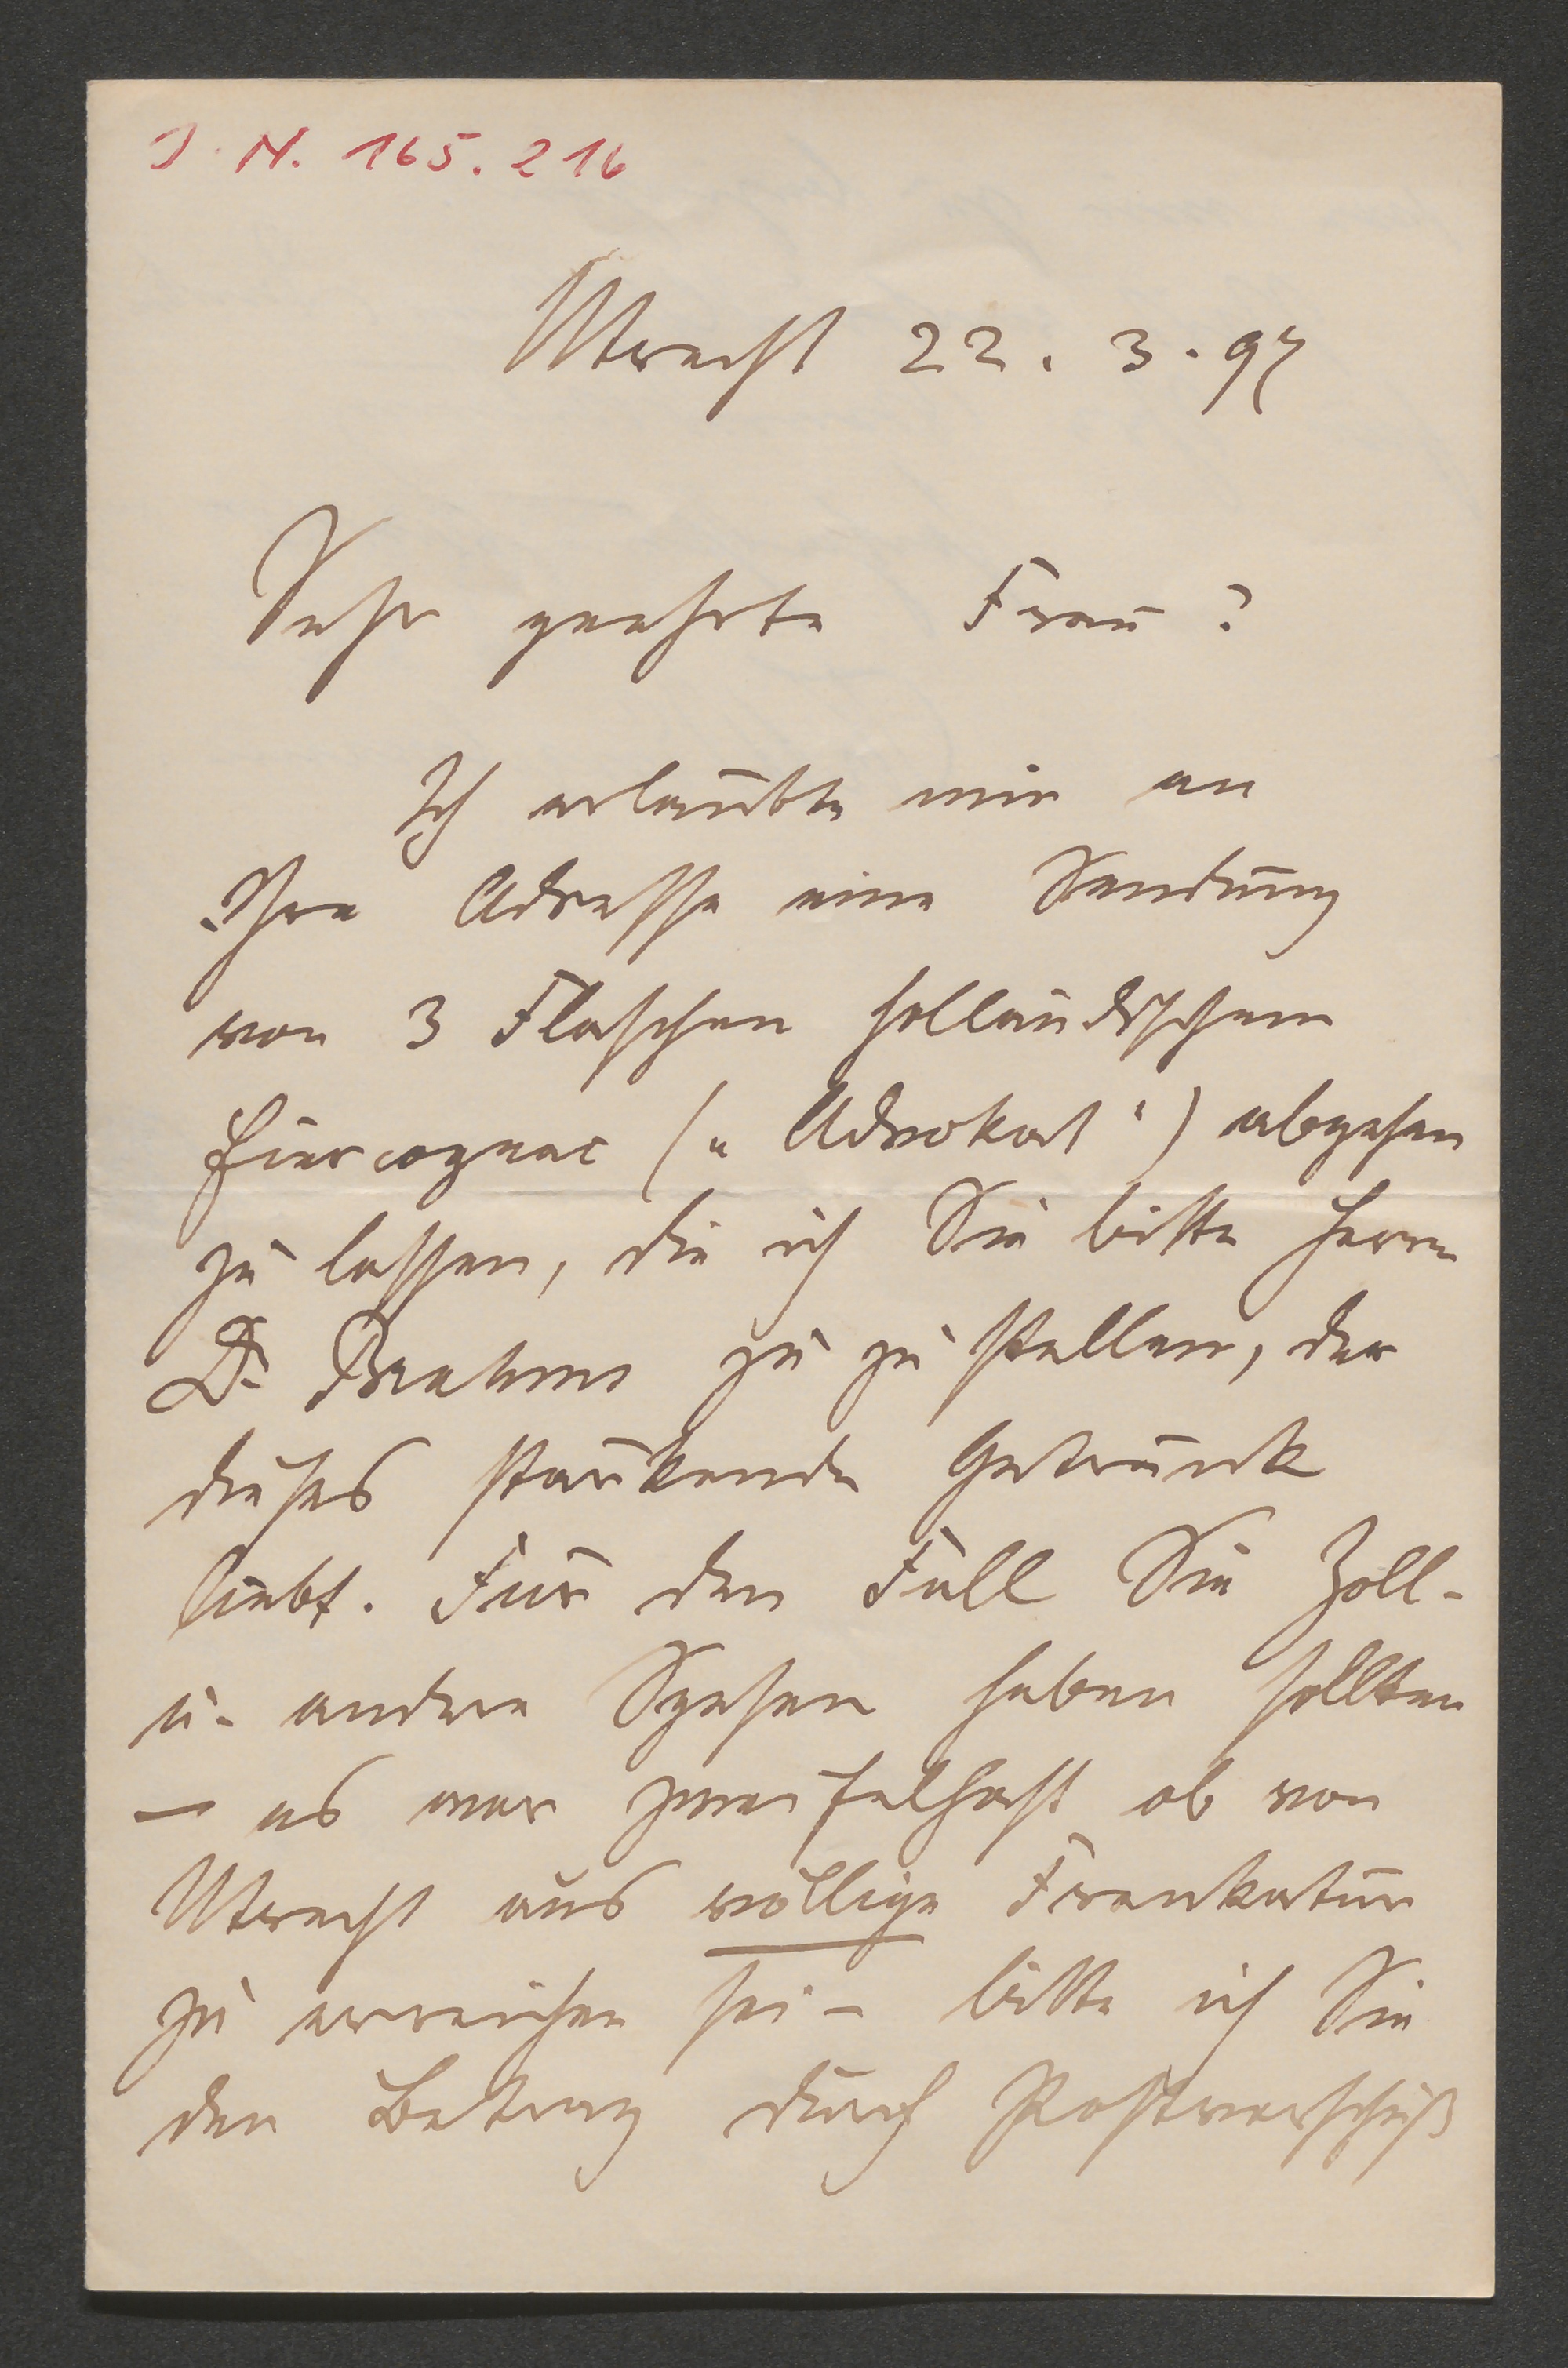 J. N. 165.216
Utrecht 22. 3. 97
Sehr geehrte Frau!
Ich erlaubte mir an
Ihre Adresse eine Sendung
von 3 Flaschen holländischem
Eiercognac („Advokat“) abgehen
zu lassen, die ich Sie bitte Herrn
Dr. Brahms zu zu stellen, der
dieses stärkende Getränk
liebt. Für den Fall Sie Zoll-
u. andere Spesen haben sollten
– es war zweifelhaft ob von
Utrecht aus völlige Frankatur
zu erreichen sei – bitte ich Sie
den Betrag durch Postvorschuß